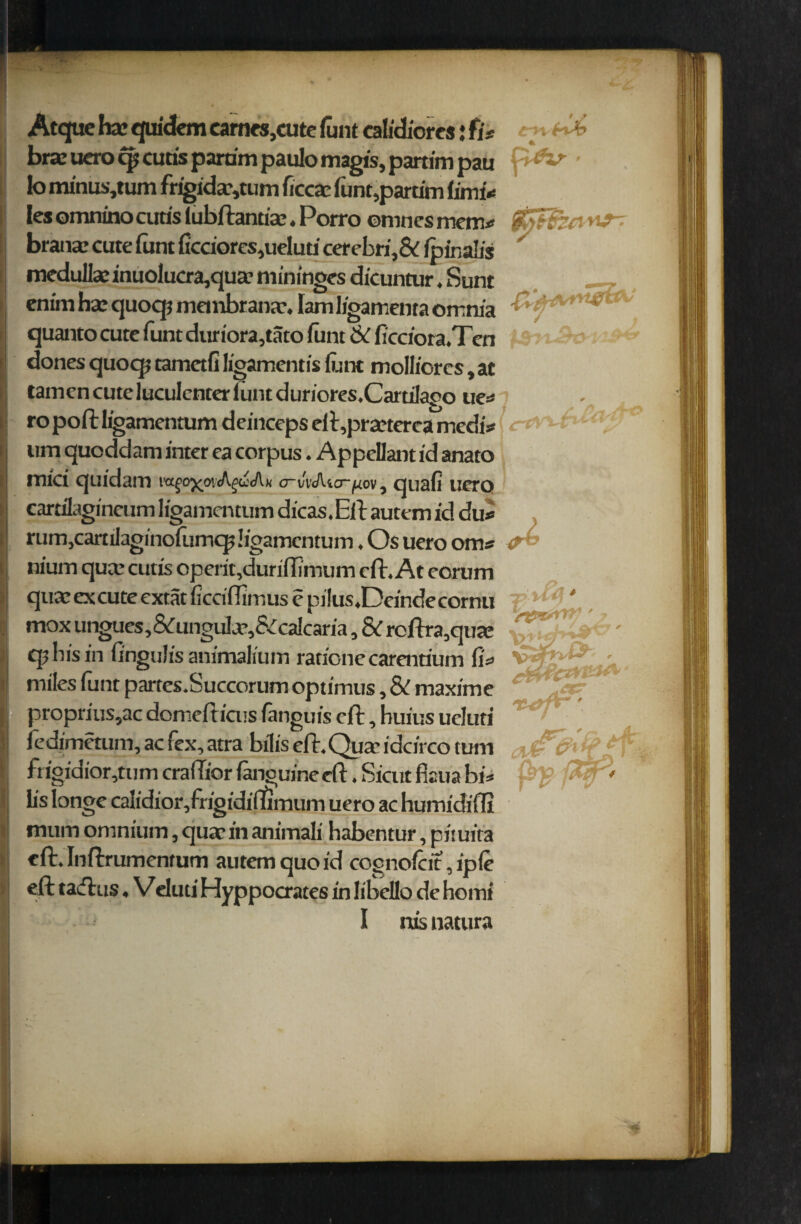 Atque hæ quidem carnes,cute ſunt calidiores: fi⸗
bræ uero qꝫ cutis partim paulo magis, partim pau
lo minus,tum frigidæ,tum ſiccæ ſunt,partim ſimi⸗
les omnino cutis ſubſtantiæ. Porro omnes mem⸗
branæ cute ſunt ſicciores,ueluti cerebri,& ſpinalis
medullæ inuolucra,quæ mininges dicuntur. Sunt
enim hæ quoqꝫ membranæ. Iam ligamenta omnia
quanto cute ſunt duriora,tãto ſunt & ſicciora.Ten
dones quoqꝫ tametſi ligamentis ſunt molliores, at
tamen cute luculenter ſunt duriores.Cartilago ue⸗
ro poſt ligamentum deinceps eſt,præterea medi⸗
um quoddam inter ea corpus. Appellant id anato
mici quidam ναϱοχονδϱώδη σύνδισμον, quaſi uero
cartilagineum ligamentum dicas.Eſt autem id du⸗
rum,cartilaginoſumqꝫ ligamentum. Os uero om⸗
nium quæ cutis operit,duriſſimum eſt.At eorum
quæ ex cute extãt ſicciſſimus ẽ pilus.Deinde cornu
mox ungues,& ungulæ,& calcaria, & roſtra,quæ
qꝫ his in ſingulis animalium ratione carentium ſi⸗
miles ſunt partes.Succorum optimus, & maxime
proprius,ac domeſticus ſanguis eſt, huius ueluti
ſedimẽtum, ac fex, atra bilis eſt.Quæ idcirco tum
frigidior,tum craſſior ſanguine eſt. Sicut flaua bi⸗
lis longe calidior,frigidiſſimum uero ac humidiſſi
mum omnium, quæ in animali habentur, pituita
eſt. Inſtrumentum autem quo id cognoſcit, ipſe
eſt tactus. Veluti Hyppocrates in libello de homi
I nis natura